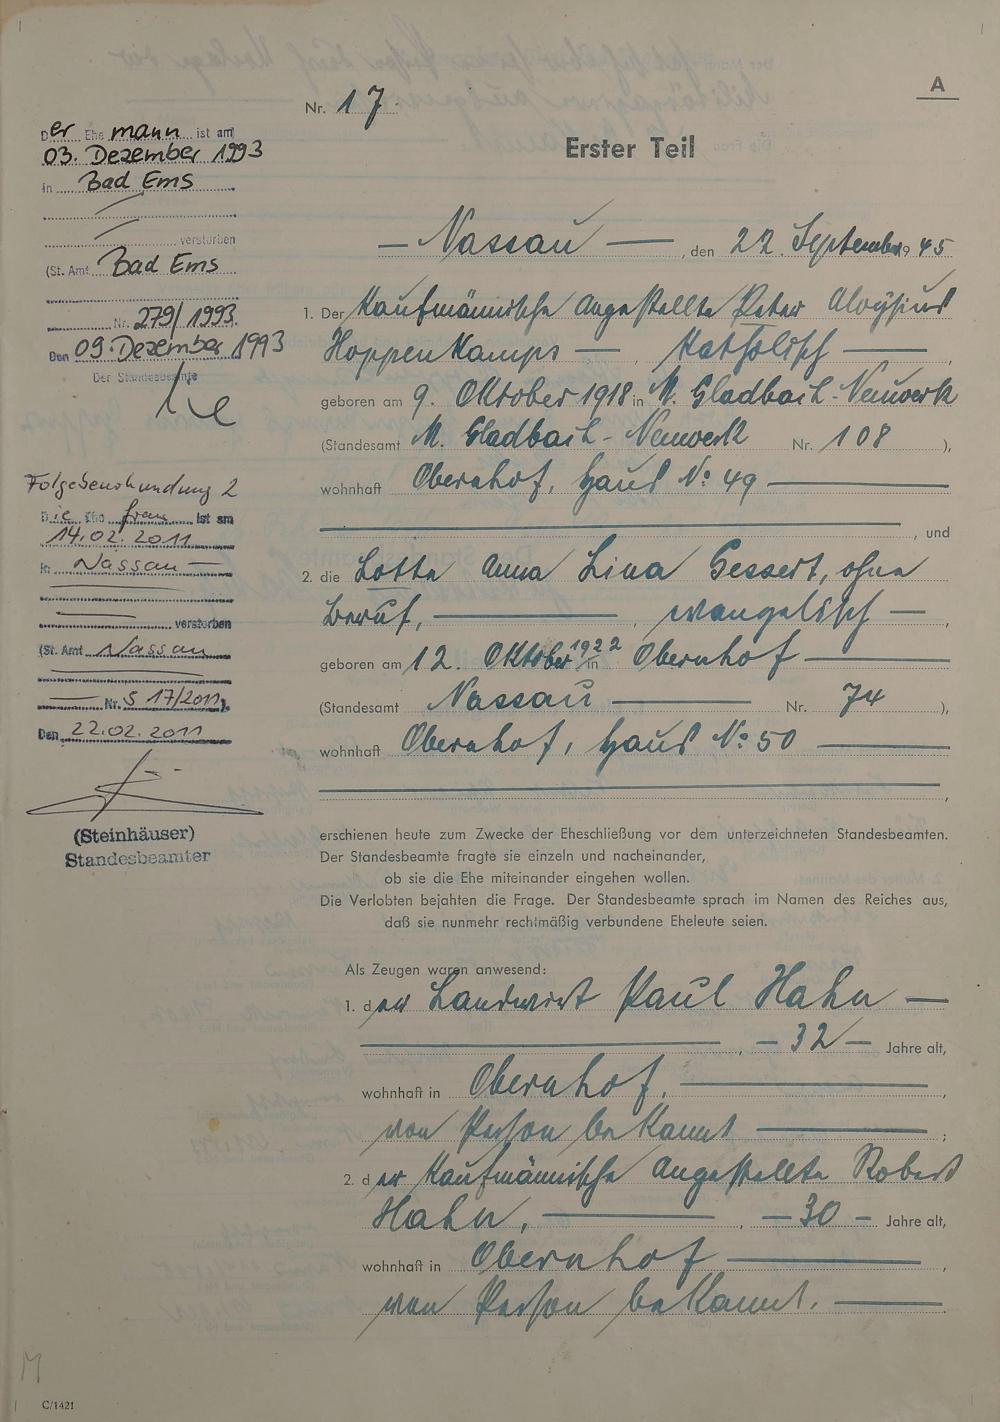 A
Nr. 17
Erster Teil
Der Ehemann ist am
03. Dezember 1993
in Bad Ems
verstorben
(St. Amt Bad Ems
Nr. 279/1993.
Den 09. Dezember 1993
Der Standesbeamte
Folgebeurkundung 2
Die Ehefrau ist am
14.02.2011
in Nassau
verstorben
(St. Amt Nassau
Nr. S 17/2011).
Den 22.02.2011
(Steinhäuser)
Standesbeamter
— Nassau —, den 22. September 1945
1. Der Kaufmännische Angestellte Peter Aloysius
Hoppenkamps —, katholisch —,
geboren am 9. Oktober 1918 in M. Gladbach-Neuwerk
(Standesamt M. Gladbach-Neuwerk Nr. 108 ),
wohnhaft Obernhof, Haus No: 49 —
, und
2. die Lotte Anna Lina Gessert, ohne
Beruf, —, evangelisch —,
geboren am 12. Oktober 1922 in Obernhof —
(Standesamt Nassau — Nr. 74 ),
wohnhaft Obernhof, Haus No: 50 —
,
erschienen heute zum Zwecke der Eheschließung vor dem unterzeichneten Standesbeamten.
Der Standesbeamte fragte sie einzeln und nacheinander,
ob sie die Ehe miteinander eingehen wollen.
Die Verlobten bejahten die Frage. Der Standesbeamte sprach im Namen des Reiches aus,
daß sie nunmehr rechtmäßig verbundene Eheleute seien.
Als Zeugen waren anwesend:
1. der Landwirt Paul Hahn —
, — 32 — Jahre alt,
wohnhaft in Obernhof, —,
von Person bekannt —;
2. der Kaufmännische Angestellte Robert
Hahn, —, — 30 — Jahre alt,
wohnhaft in Obernhof —,
von Person bekannt. —
M
C/1421